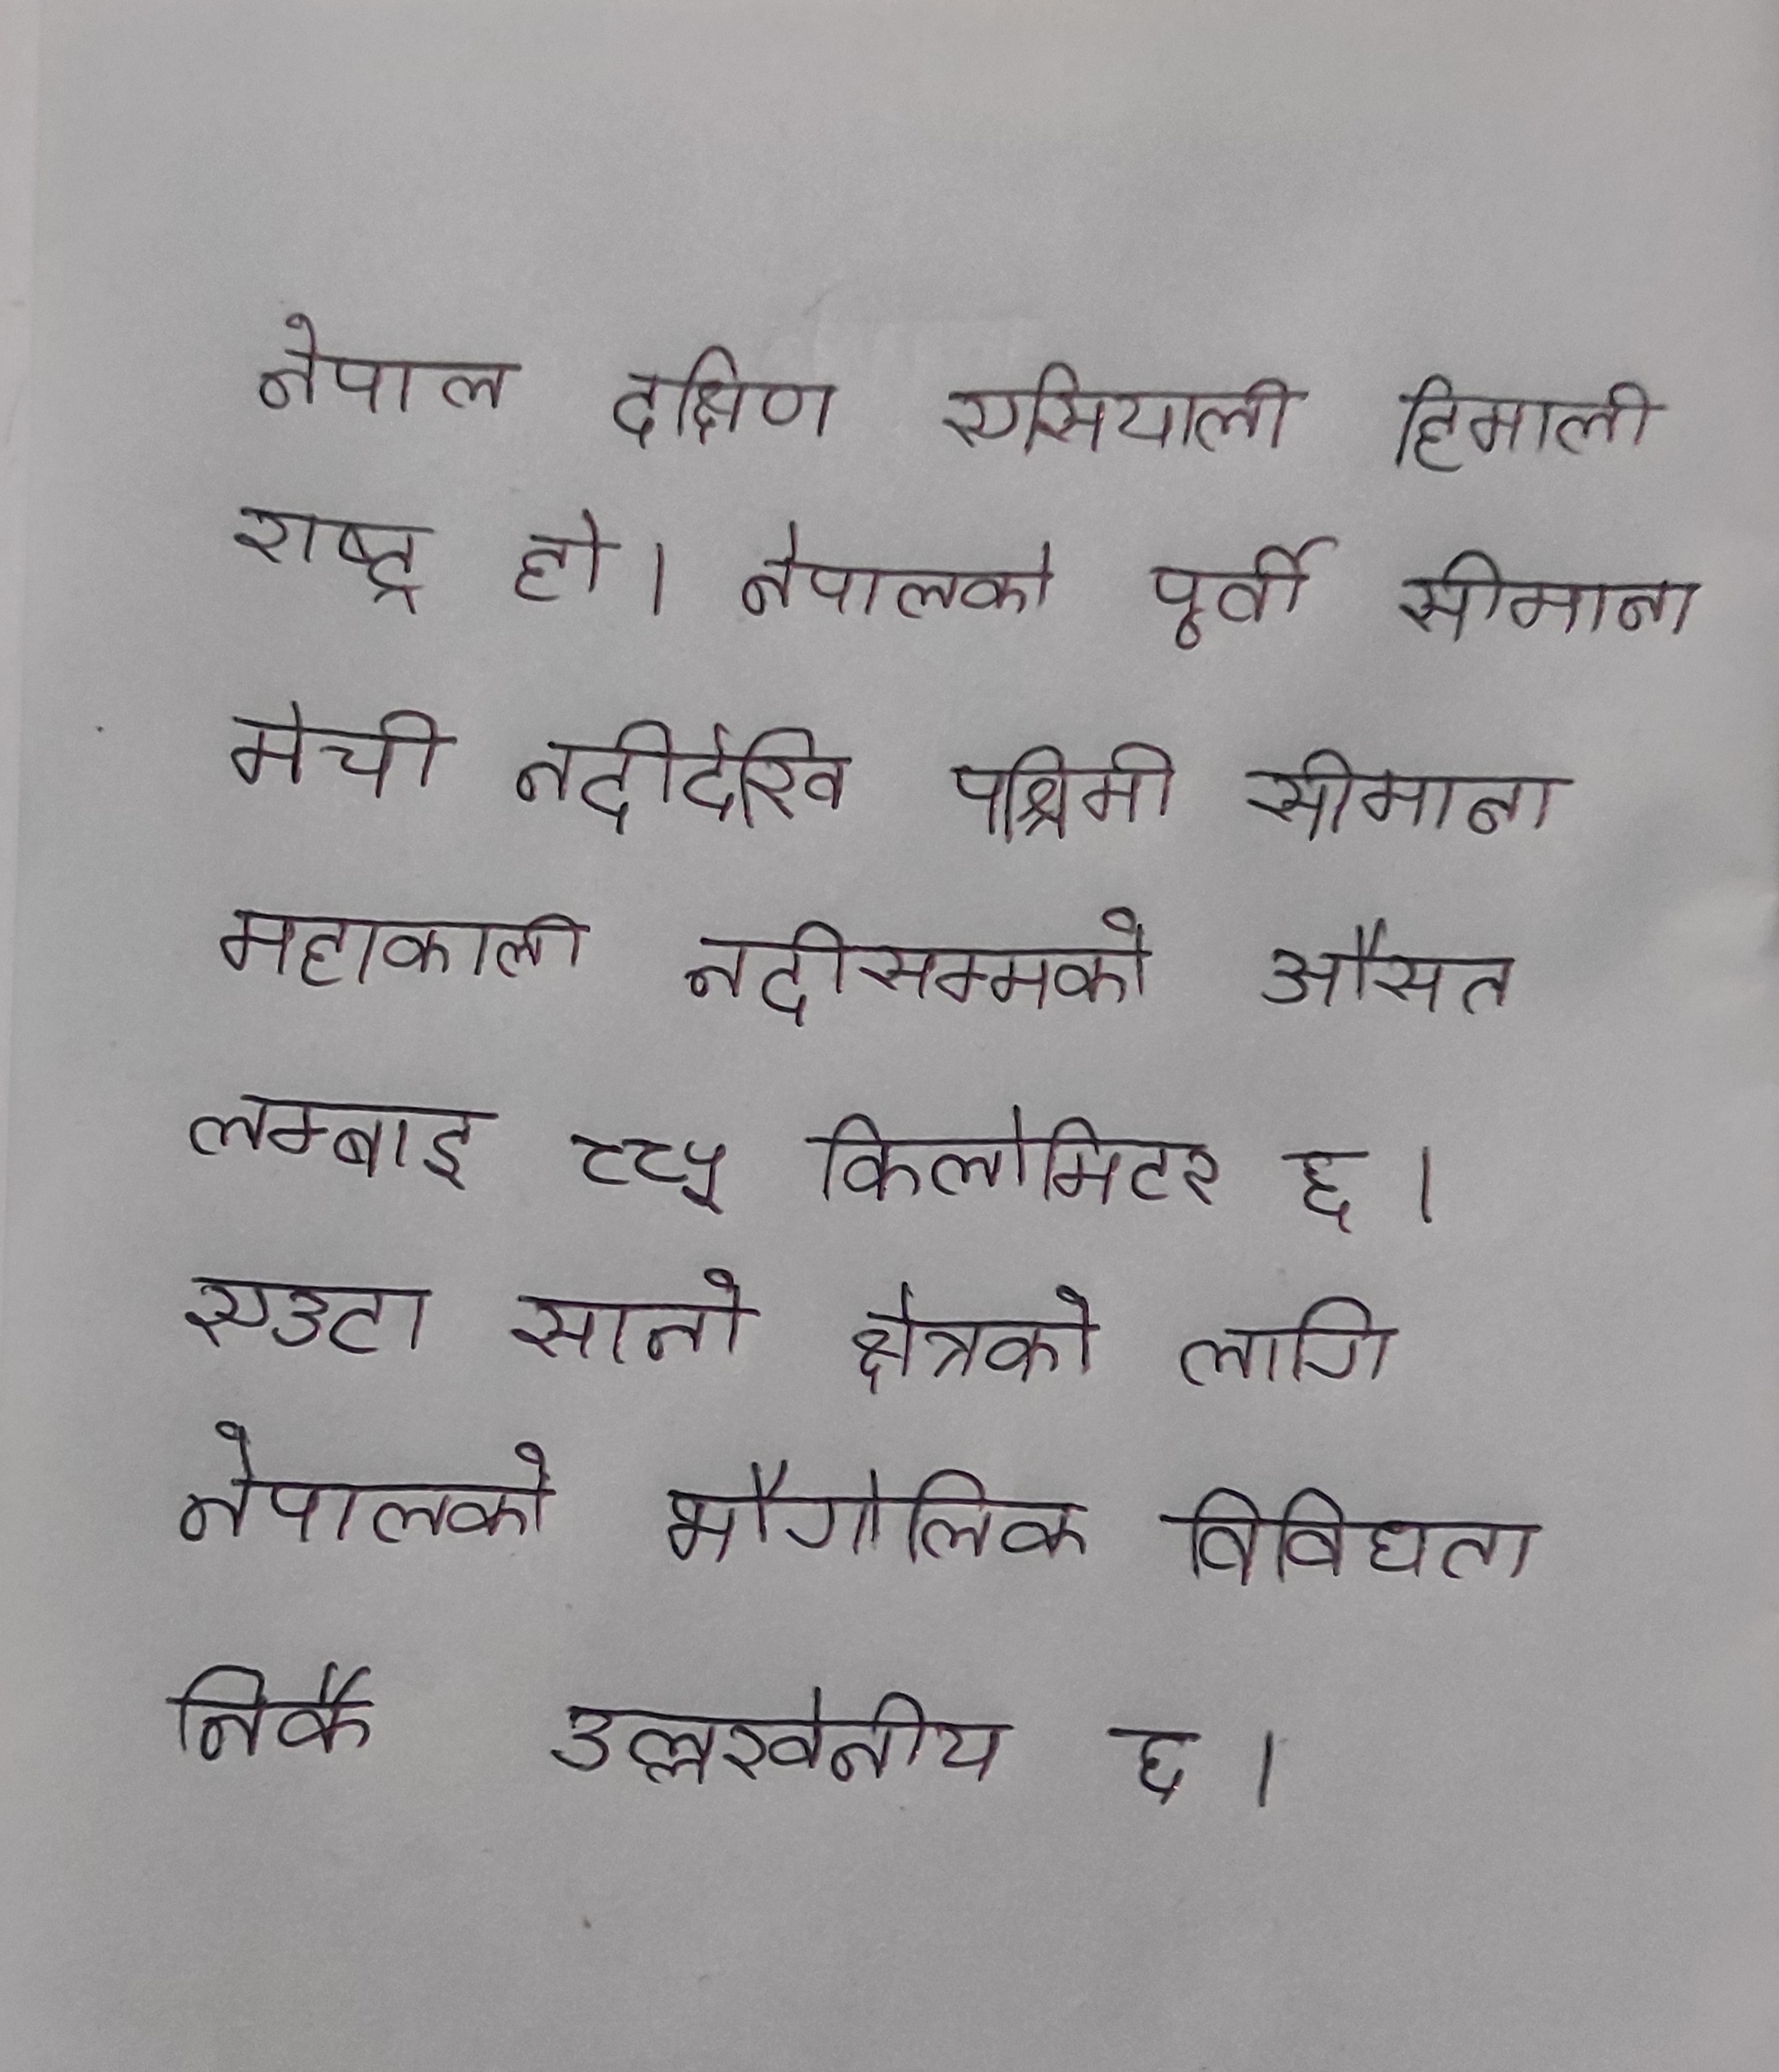 नेपाल दक्षिण एसियाली हिमाली
राष्ट्र हो। नेपालको पूर्वी सीमाना
मेची नदीदेखि पश्चिमी सीमाना
महाकाली नदीसम्मको औसत
लम्बाइ ८८५ किलोमिटर छ।
एउटा सानो क्षेत्रको लागि
नेपालको भौगोलिक विविधता
निकै उल्लखेनीय छ।